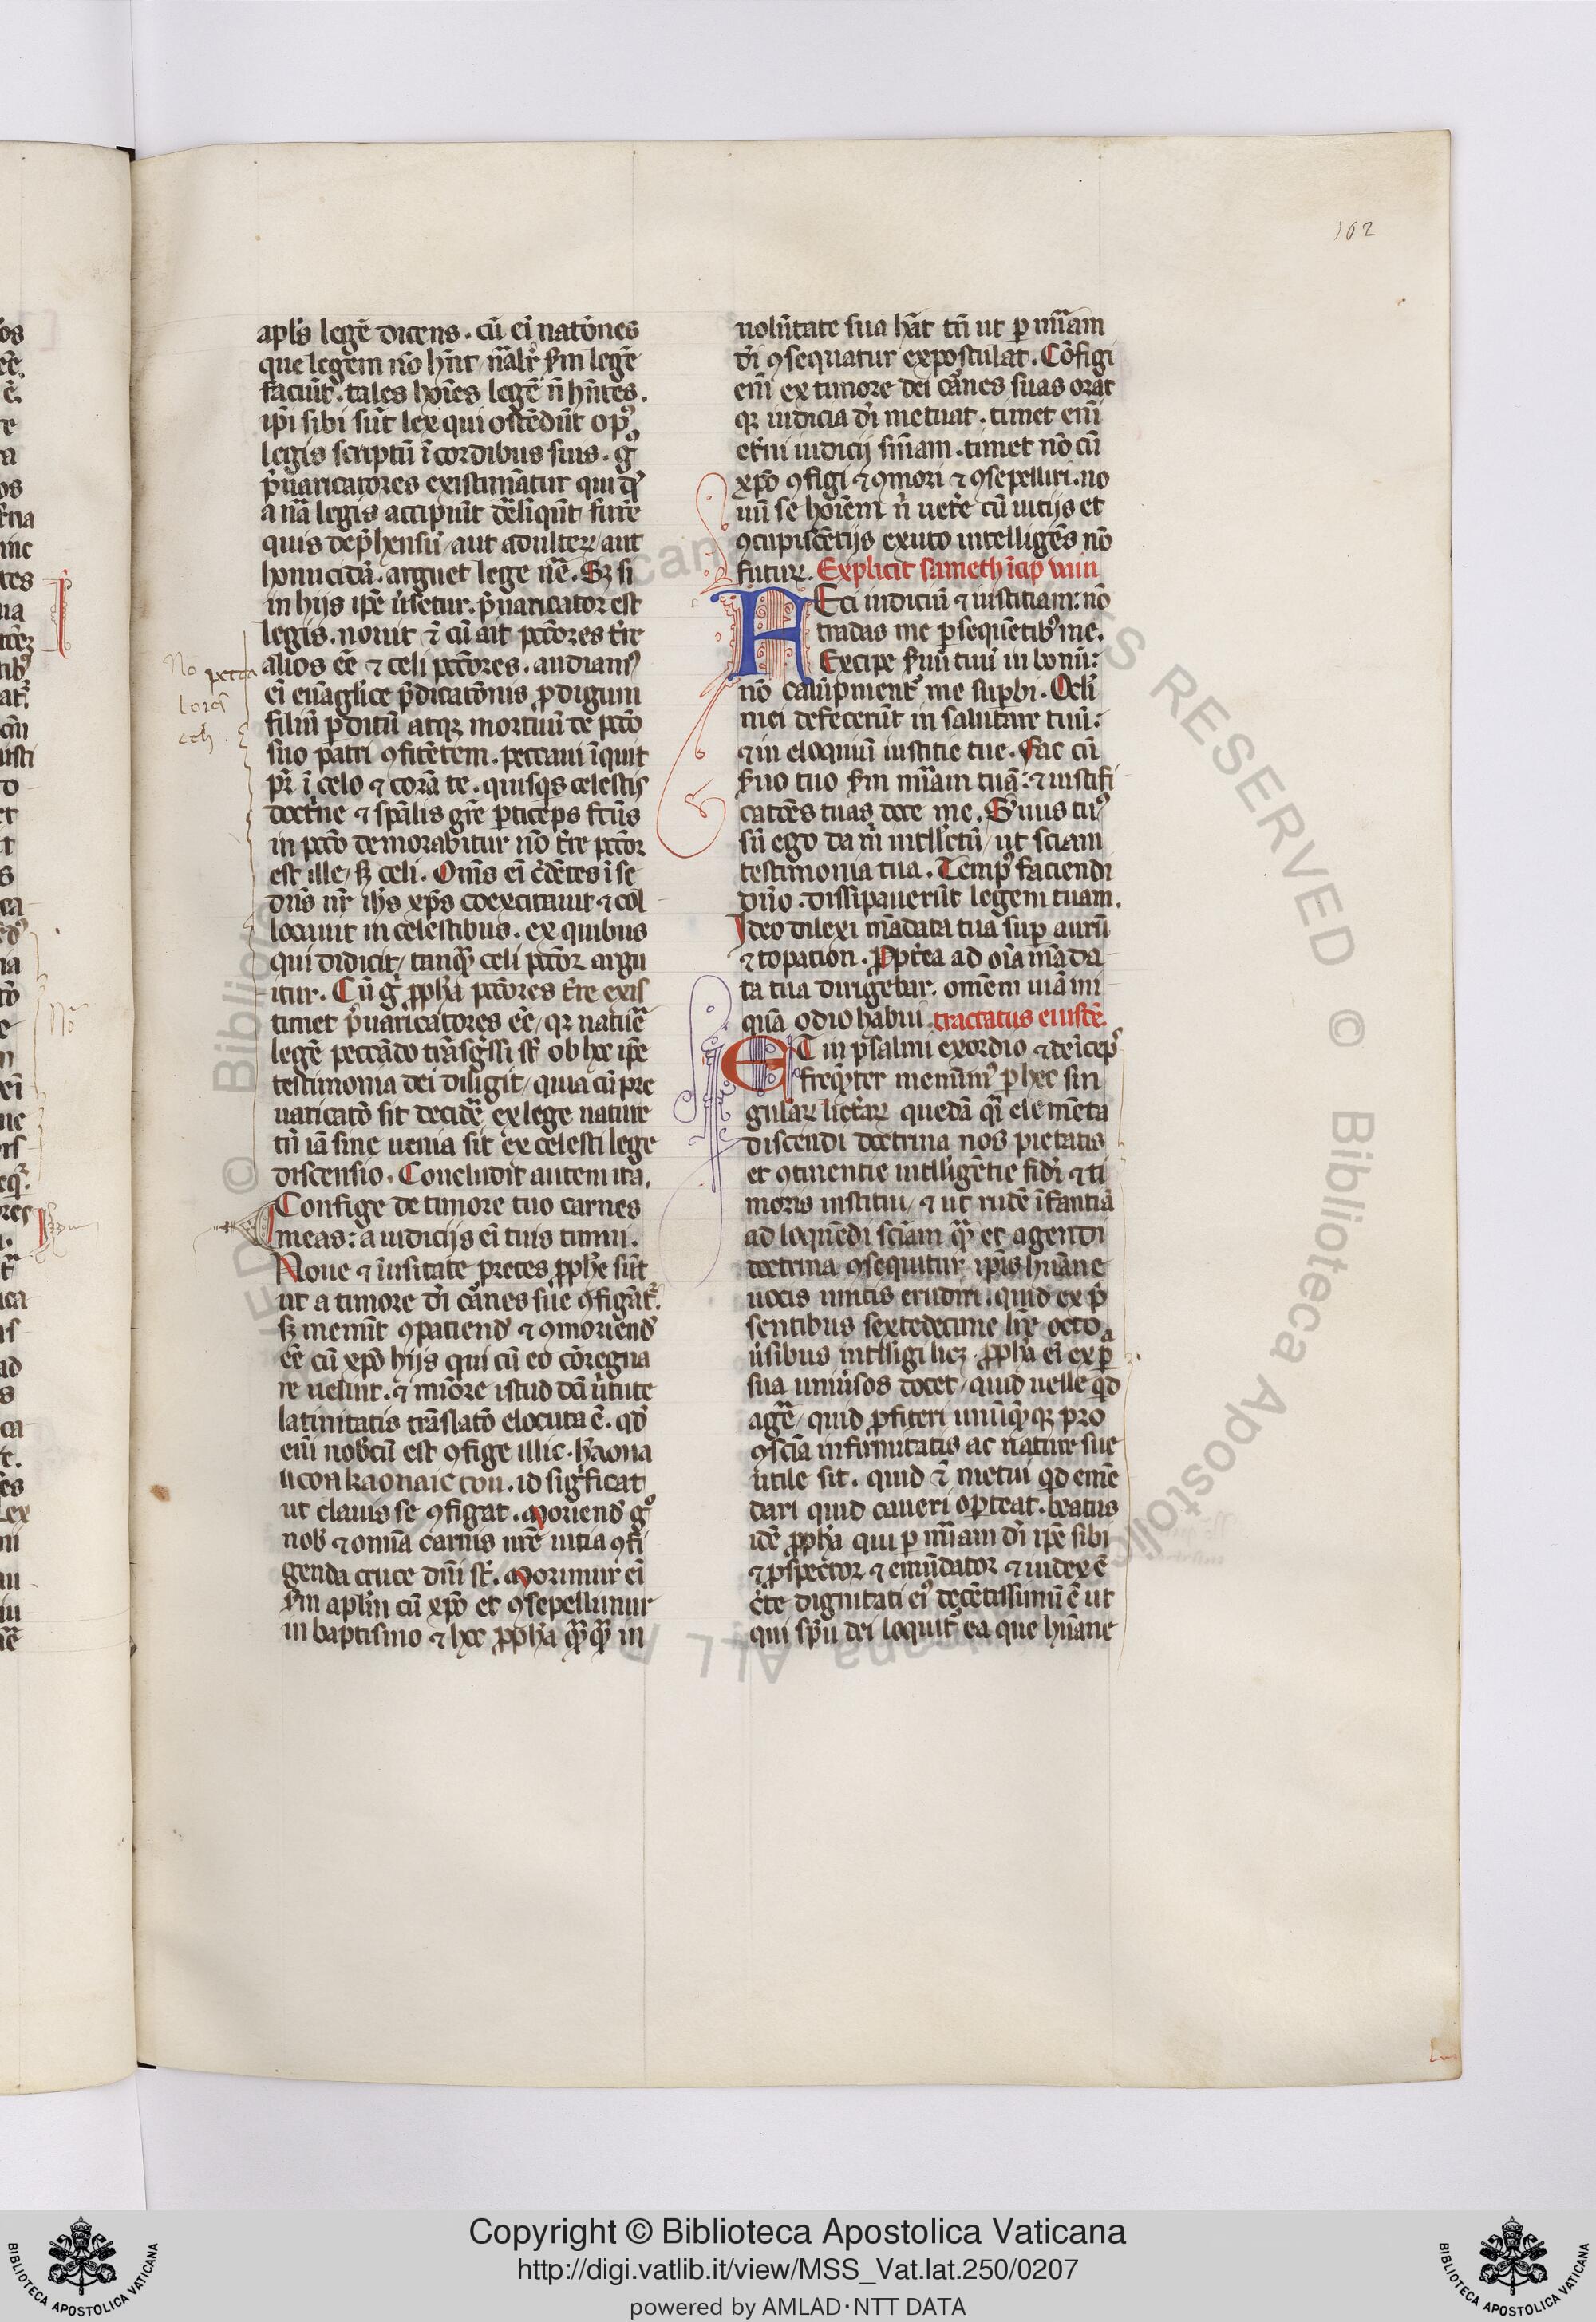 162
apl's legē dicens. cū eī natōnes
que legem nō hn̄t nāliť ſm legē
faciūt. tales hoīes legē n̄ hn̄tes.
ip̄i sibi sūt lex qui ostēdūt op⁹
legis scriptū ī cordibus suis. gͦ
p̄uaricatores existimātur qui
a nā legis accipiūt
quis dep̄hensū aut adulteꝝ aut
homicidā. arguet lege n̄rē. Sꝫ si
in hijs ip̄e ūsetur. p̄uaricator est
legis. nouit ⁊ cū ait pctōres t̄re
alios ēē ⁊ celi pctōres. audiam⁹
eī euāglice p̄dicatōnis ꝓdigum
filiū ꝑditū atqꝫ mortuū de pctō
suo patri ꝯfitētem. peccaui īquit
pr̄ ī celo ⁊ corā te. quisqs celestis
doct'ne ⁊ sp̄alis grē ꝑticeps fc̄us
in pctō demorabitur nō t̄re pctōr
est ille, sꝫ celi. Om̄s eī c̄dētes ī se
dn̄s nr̄ ih̄s xp̄s coexcitauit ⁊ col
locauit in celestibus. ex quibus
qui didicit, tanqꝫ celi pctōr argu
itur. Cū gͦ ꝓph̄a pctōres t̄re exis
timet p̄uaricatores ēē, qꝛ natuē
legē peccādo trāsḡssi st̄ ob hoc ip̄e
testimonia dei diligit, quia cū pre
uaricatō sit decidē ex lege nature
tū iā sine uenia sit ex celesti lege
discensio. Concludit autem ita.
Confige de timore tuo carnes
meas: a iudicijs eī tuis timui.
Noue ⁊ īusitate preces ꝓph̄e sūt
ut a timore dī carnes sue ꝯfigāt᷑.
sꝫ meminit ꝯpatiend' ⁊ ꝯmoriend'
ēē cū xpō hijs qui cū eo cōregna
re uelint. ⁊ miōre istud dc̄i ūtute
latinitatis trāslatō elocuta ē. qd'
eī nob'cū est ꝯfige illic. kaona
ucon kaonaic con. id sig'ficat
ut clauis se ꝯfigat. Moriend' gͦ
nob' ⁊ omīa carnis nrē uitia ꝯfi
genda cruce dn̄i st̄. Morimur eī
ſm aplm̄ cū xpō et ꝯsepellimur
in baptismo ⁊ hec ꝓph̄a qꝫqꝫ in
No pecca
lores
celi.
uolūtate sua hāt tn̄ ut ꝑ mīam
dī ꝯsequatur expostulat. Cōfigi
eni ex timore dei carnes suas orat
qꝛ iudicia dī metuat. timet enī
et'ni iudicij sniam. timet nō cū
xpō ꝯfigi ⁊ ꝯmori ⁊ ꝯsepelliri. no
uū se hoīem n̄ uet'e cū uitijs et
ꝯcupiscētijs exuto intelligēs nō
futuꝝ. Explicit sameth īcip̄ uiin
FEci iudiciū ⁊ iustitiam: nō
tradas me ꝑsequētib⁹ me.
Excipe ſuū tuū in bonū:
nō calūpnient᷑ me suꝑbi. Ocl'i
mei defecerūt in salutare tuū:
⁊ in eloquiū iustitie tue. Fac cū
ſuo tuo ſm mīam tuā: ⁊ iustifi
catōes tuas doce me. Suus tu⁹
sū ego da m̄ intllectū, ut sciam
testimonia tua. Temp⁹ faciendi
dn̄o. dissipauerūt legem tuam.
Ideo dilexi mādata tua suꝑ aurū
⁊ topation. Ꝓpt'ea ad oīa māda
ta tua dirigebar. omēm uiā ini
quā odio habui. tractatus eiusdē.
ET in psalmi exordio ⁊ deīcep⁹
freqꝫter meminim⁹ ꝑ hec sin
gulaꝝ litt'aꝝ quedā qī elemēta
discendi doctrina nos pietatis
et ꝯtinentie intlligētie fidī ⁊ ti
moris institui, ⁊ ut rudē īfantiā
ad loquēdi sciam qꝫ et agendi
doctrina ꝯsequitur ip̄is hūane
uocis initiis erudiri. quid ex p̄
sentibus sextedecime lrē octo
ūsibus intlligi licꝫ. ꝓph̄a eī ex ꝑ
sua uniūsos docet, quid uelle qd
agē, quid ꝓfiteri unūqꝫqꝛ pro
ꝯsciā infirmitatis ac nature sue
utile sit. quid ⁊ metui qd emē
dari quid caueri oꝑteat. beatus
idē ꝓph̄a qui ꝑ mīam dī ip̄e sibi
⁊ ꝓspector ⁊ emūdator ⁊ iudex ē
c̄te dignitati ei⁹ decētissimū ē ut
qui sp̄u dei loquit᷑ ea que hūane
Copyright © Biblioteca Apostolica Vaticana
http://digi.vatlib.it/view/MSS_Vat.lat.250/0207
powered by AMLAD·NTT DATA
BIBLIOTECA APOSTOLICA VATICANA
BIBLIOTECA APOSTOLICA VATICANA